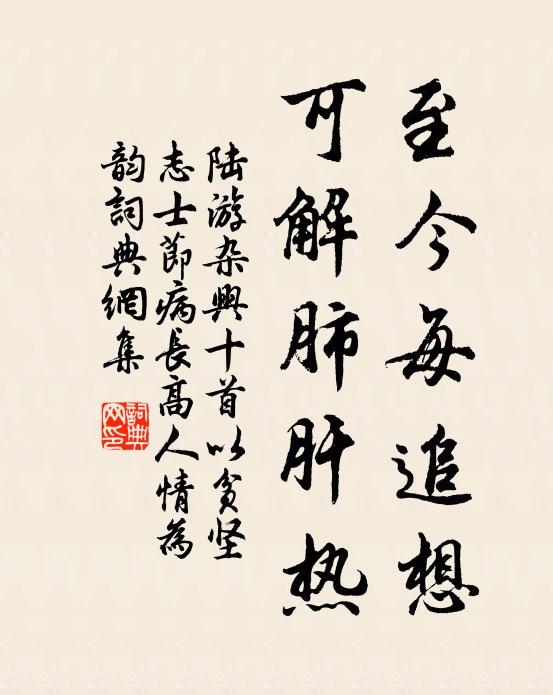 至今每追想
可解肺肝热
陆游杂興十首以贫坚
志士节病長高人情為
韵詞典網集
詞典网印